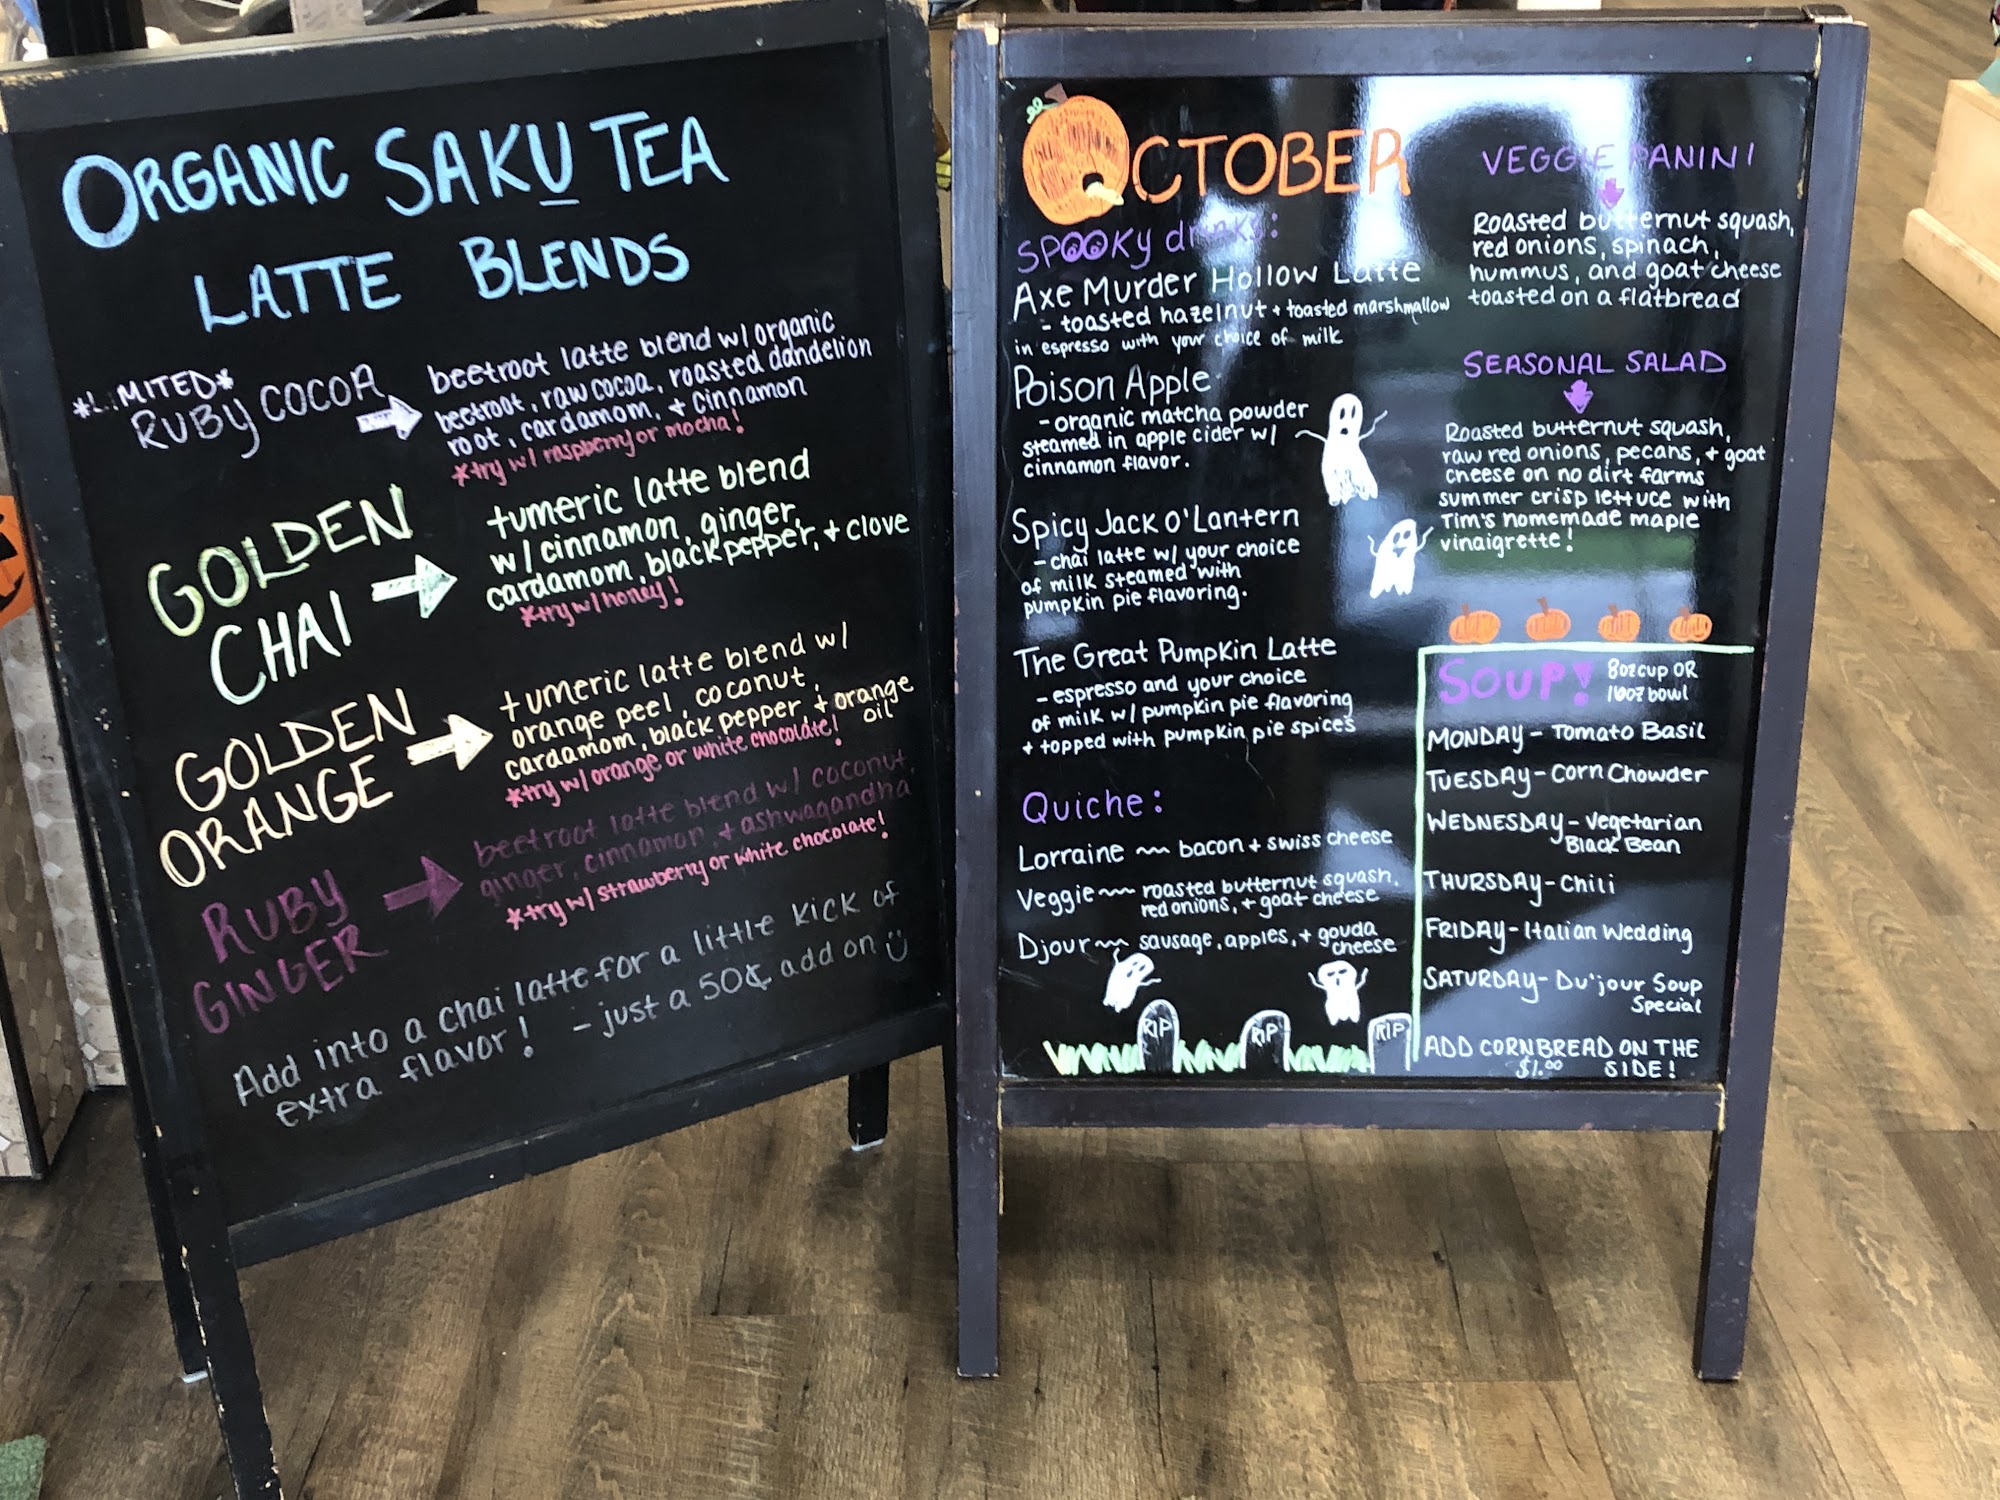 ORGANIC SAKU TEA
LATTE BLENDS
*LIMITED*
RUBY COCOA
beetroot latte blend w/ organic
beetroot, raw cocoa, roasted dandelion
root, cardamom, + cinnamon
*try w/ raspberry or mocha!
GOLDEN
CHAI
tumeric latte blend
w/ cinnamon, ginger,
cardamom, black pepper, + clove
*try w/ honey!
GOLDEN
ORANGE
tumeric latte blend w/
orange peel, coconut,
cardamom, black pepper, + orange
oil
*try w/ orange or white chocolate!
RUBY
GINGER
beetroot latte blend w/ coconut,
ginger, cinnamon, + ashwagandha
*try w/ strawberry or white chocolate!
Add into a chai latte for a little kick of
extra flavor! - just a 50¢ add on
OCTOBER
SPOOKY drinks:
Axe Murder Hollow Latte
- toasted hazelnut + toasted marshmallow
in espresso with your choice of milk
Poison Apple
- organic matcha powder
steamed in apple cider w/
cinnamon flavor.
Spicy Jack O'Lantern
- chai latte w/ your choice
of milk steamed with
pumpkin pie flavoring.
The Great Pumpkin Latte
- espresso and your choice
of milk w/ pumpkin pie flavoring
+ topped with pumpkin pie spices
Quiche:
Lorraine ~~ bacon + swiss cheese
Veggie ~~ roasted butternut squash,
red onions, + goat cheese
Djour ~~ sausage, apples, + gouda
cheese
RIP
RIP
RIP
VEGGIE PANINI
Roasted butternut squash,
red onions, spinach,
hummus, and goat cheese
toasted on a flatbread
SEASONAL SALAD
Roasted butternut squash,
raw red onions, pecans, + goat
cheese on no dirt farms
summer crisp lettuce with
Tim's homemade maple
vinaigrette!
SOUP! 8oz cup OR
16oz bowl
MONDAY - Tomato Basil
TUESDAY - Corn Chowder
WEDNESDAY - Vegetarian
Black Bean
THURSDAY - Chili
FRIDAY - Italian Wedding
SATURDAY - Du'jour Soup
Special
ADD CORNBREAD ON THE
$1.00 SIDE!